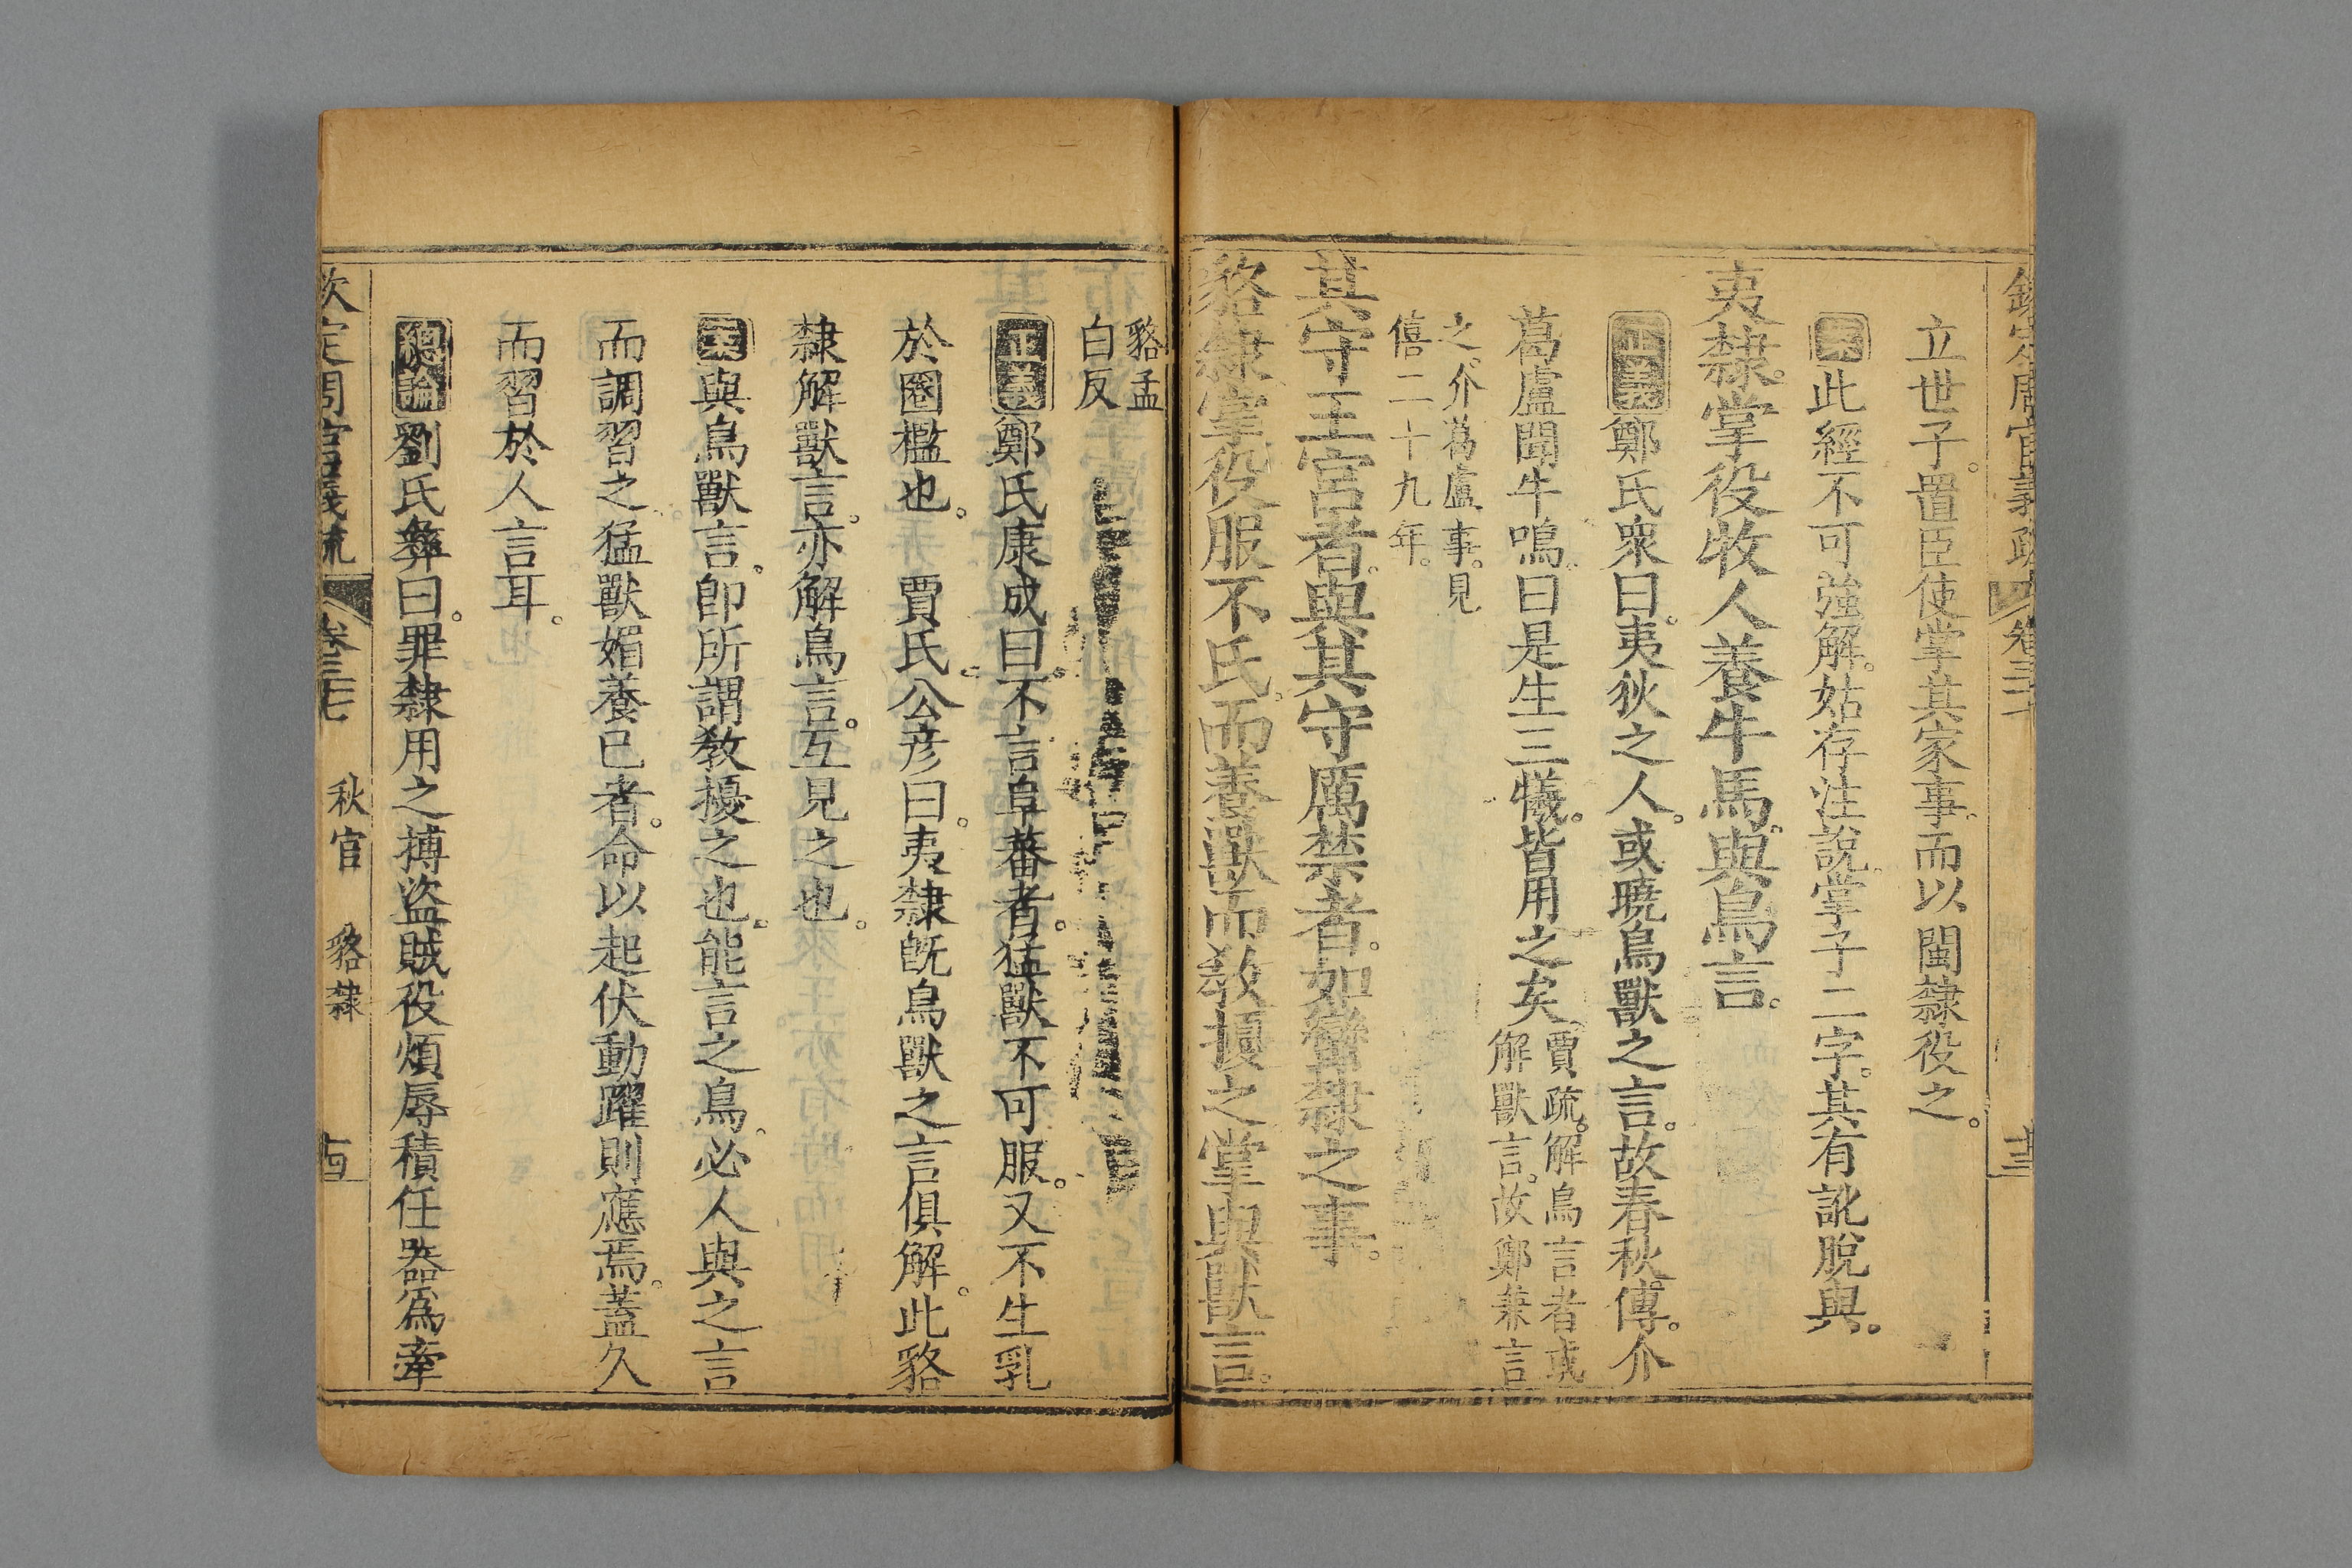 欽定周官義疏 卷三十七
立世子。置臣使掌其家事。而以閩隸役之。
案此經不可強解。姑存注說。掌子二字。其有訛脫與。
夷隸。掌役牧人養牛馬。與鳥言。
正義鄭氏衆曰。夷狄之人。或曉鳥獸之言。故春秋傳。介
葛盧聞牛鳴。曰是生三犧。皆用之矣
賈疏。解鳥言者或
解獸言。故鄭兼言
之。介葛盧事。見
僖二十九年。
其守王宮者。與其守厲禁者。如蠻隸之事。
貉隸。掌役服不氏。而養獸而教擾之。掌與獸言。
貉孟
白反
正義鄭氏康成曰。不言阜蕃者。猛獸不可服。又不生乳
於圈檻也。 賈氏公彦曰。夷隸旣鳥獸之言俱解。此貉
隸解獸言。亦解鳥言。互見之也。
案與鳥獸言。卽所謂教擾之也。能言之鳥。必人與之言
而調習之。猛獸媚養已者。命以起伏動躍則應焉。蓋久
而習於人言耳。
總論劉氏彝曰。罪隸用之搏盜賊役煩辱積任器爲牽
欽定周官義疏 卷三十七 秋官 貉隸